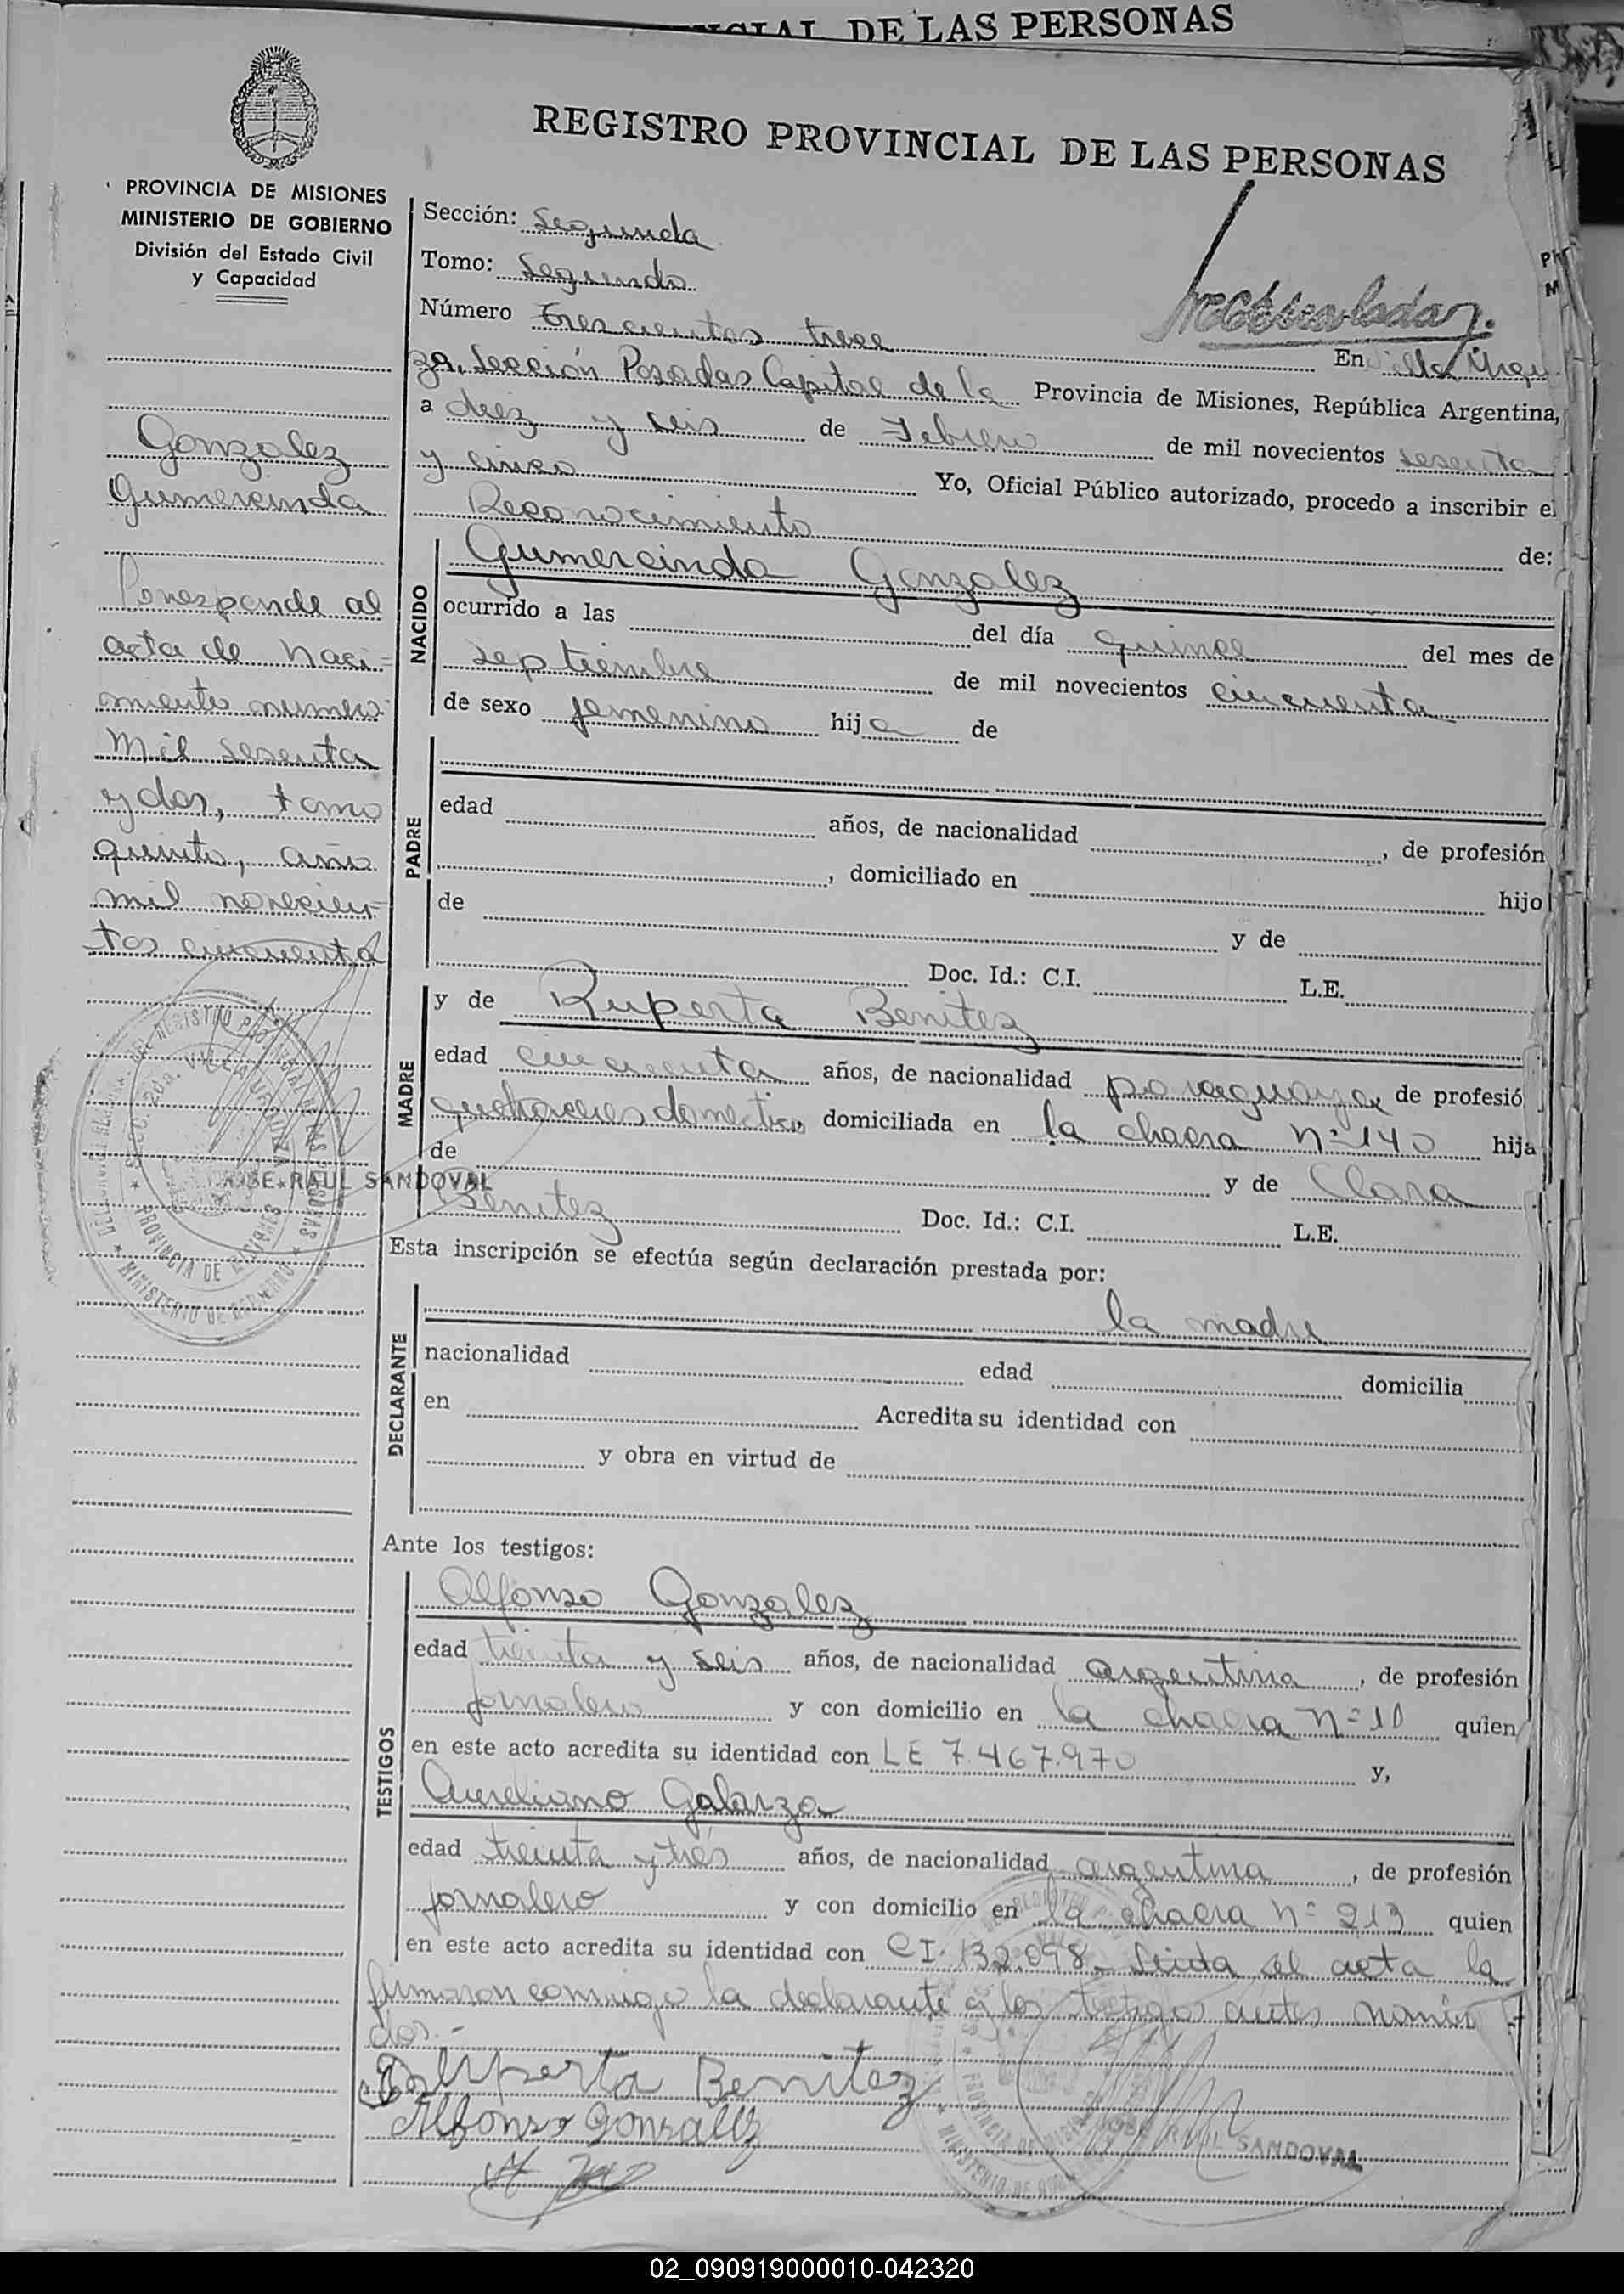 DE LAS PERSONAS
REGISTRO PROVINCIAL DE LAS PERSONAS
PROVINCIA DE MISIONES
MINISTERIO DE GOBIERNO
División del Estado Civil
y Capacidad
Gonzalez
Gumercinda
Corresponde al
acta de naci-
miento numero
mil sesenta
y dos, tomo
quinto, año
mil novecien-
tos cincuenta
JOSE RAUL SANDOVAL
Sección: Segunda
Tomo: Segundo
Número trescientos trece
En Villa Urqui
za, Sección Posadas Capital de la Provincia de Misiones, República Argentina,
a diez y seis de Febrero de mil novecientos sesenta
y cinco Yo, Oficial Público autorizado, procedo a inscribir el
Reconocimiento de:
NACIDO
Gumercinda Gonzalez
ocurrido a las del día quince del mes de
septiembre de mil novecientos cincuenta
de sexo femenino hija de
PADRE
edad años, de nacionalidad , de profesión
, domiciliado en hijo
de y de
Doc. Id.: C.I. L.E.
MADRE
y de Ruperta Benitez
edad cincuenta años, de nacionalidad paraguaya de profesió
quehaceres domestico, domiciliada en la chacra nº 140 hija
de y de Clara
Benitez Doc. Id.: C.I. L.E.
Esta inscripción se efectúa según declaración prestada por:
DECLARANTE
la madre
nacionalidad edad domicilia
en Acredita su identidad con
y obra en virtud de
Ante los testigos:
TESTIGOS
Alfonso Gonzalez
edad treinta y seis años, de nacionalidad argentina, de profesión
jornalero y con domicilio en la chacra nº 10 quien
en este acto acredita su identidad con LE 7.467.970 y,
Aureliano Galarza
edad treinta y tres años, de nacionalidad argentina, de profesión
jornalero y con domicilio en la chacra nº 213 quien
en este acto acredita su identidad con CI. 132.098 - Leida el acta la
firmaron conmigo la declarante y los testigos antes nombra
dos.-
Ruperta Benitez
Alfonso Gonzalez
RAUL SANDOVAL
02_090919000010-042320